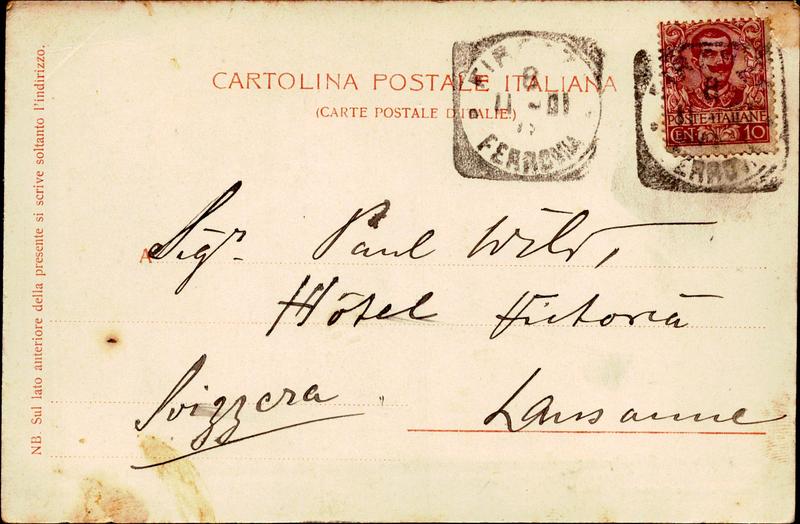 CARTOLINA POSTALE ITALIANA
(CARTE POSTALE D'ITALIE.)
8
11-01
FERROVIA
POSTE·ITALIANE
CENT. 10
FERROVIA
A Sigr. Paul Wild,
Hôtel Victoria
Svizzera
Lausanne
NB. Sul lato anteriore della presente si scrive soltanto l'indirizzo.